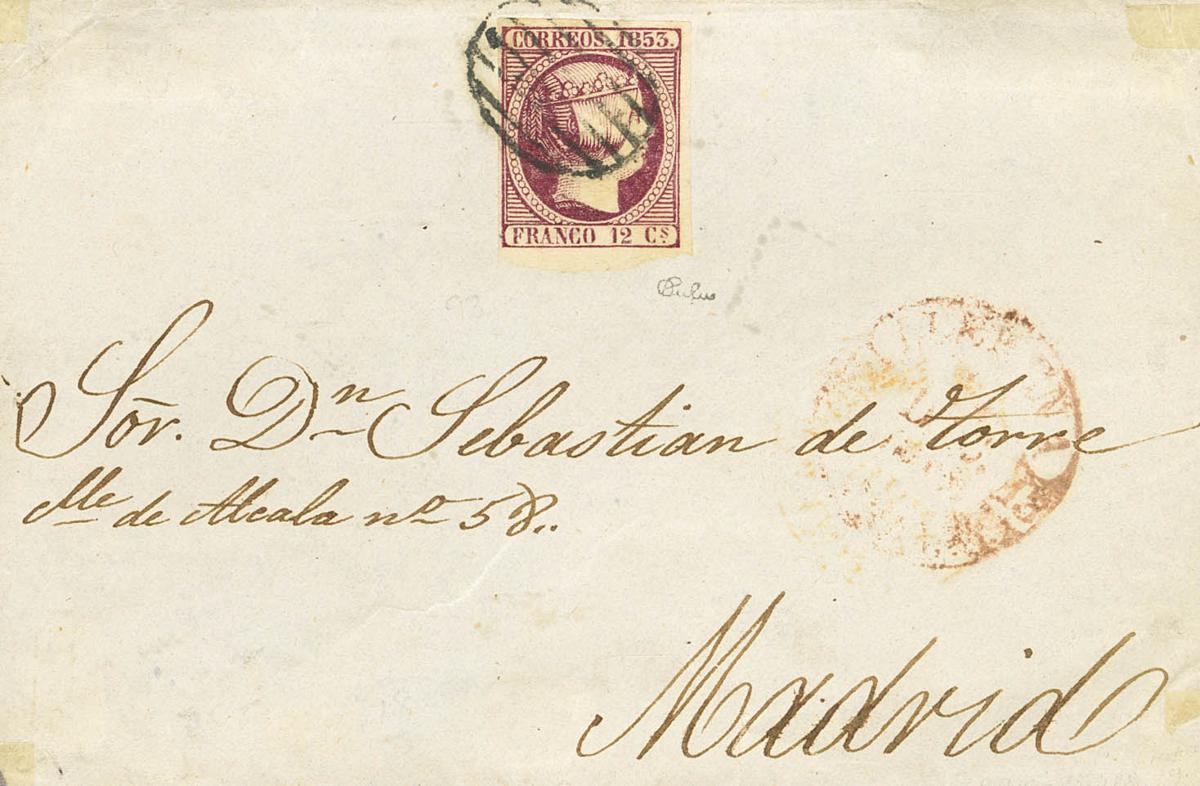 CORREOS. 1853.
FRANCO 12 Cs
Sōr. Dn Sebastian de Torre
Clle de Alcala no 58..
Madrid